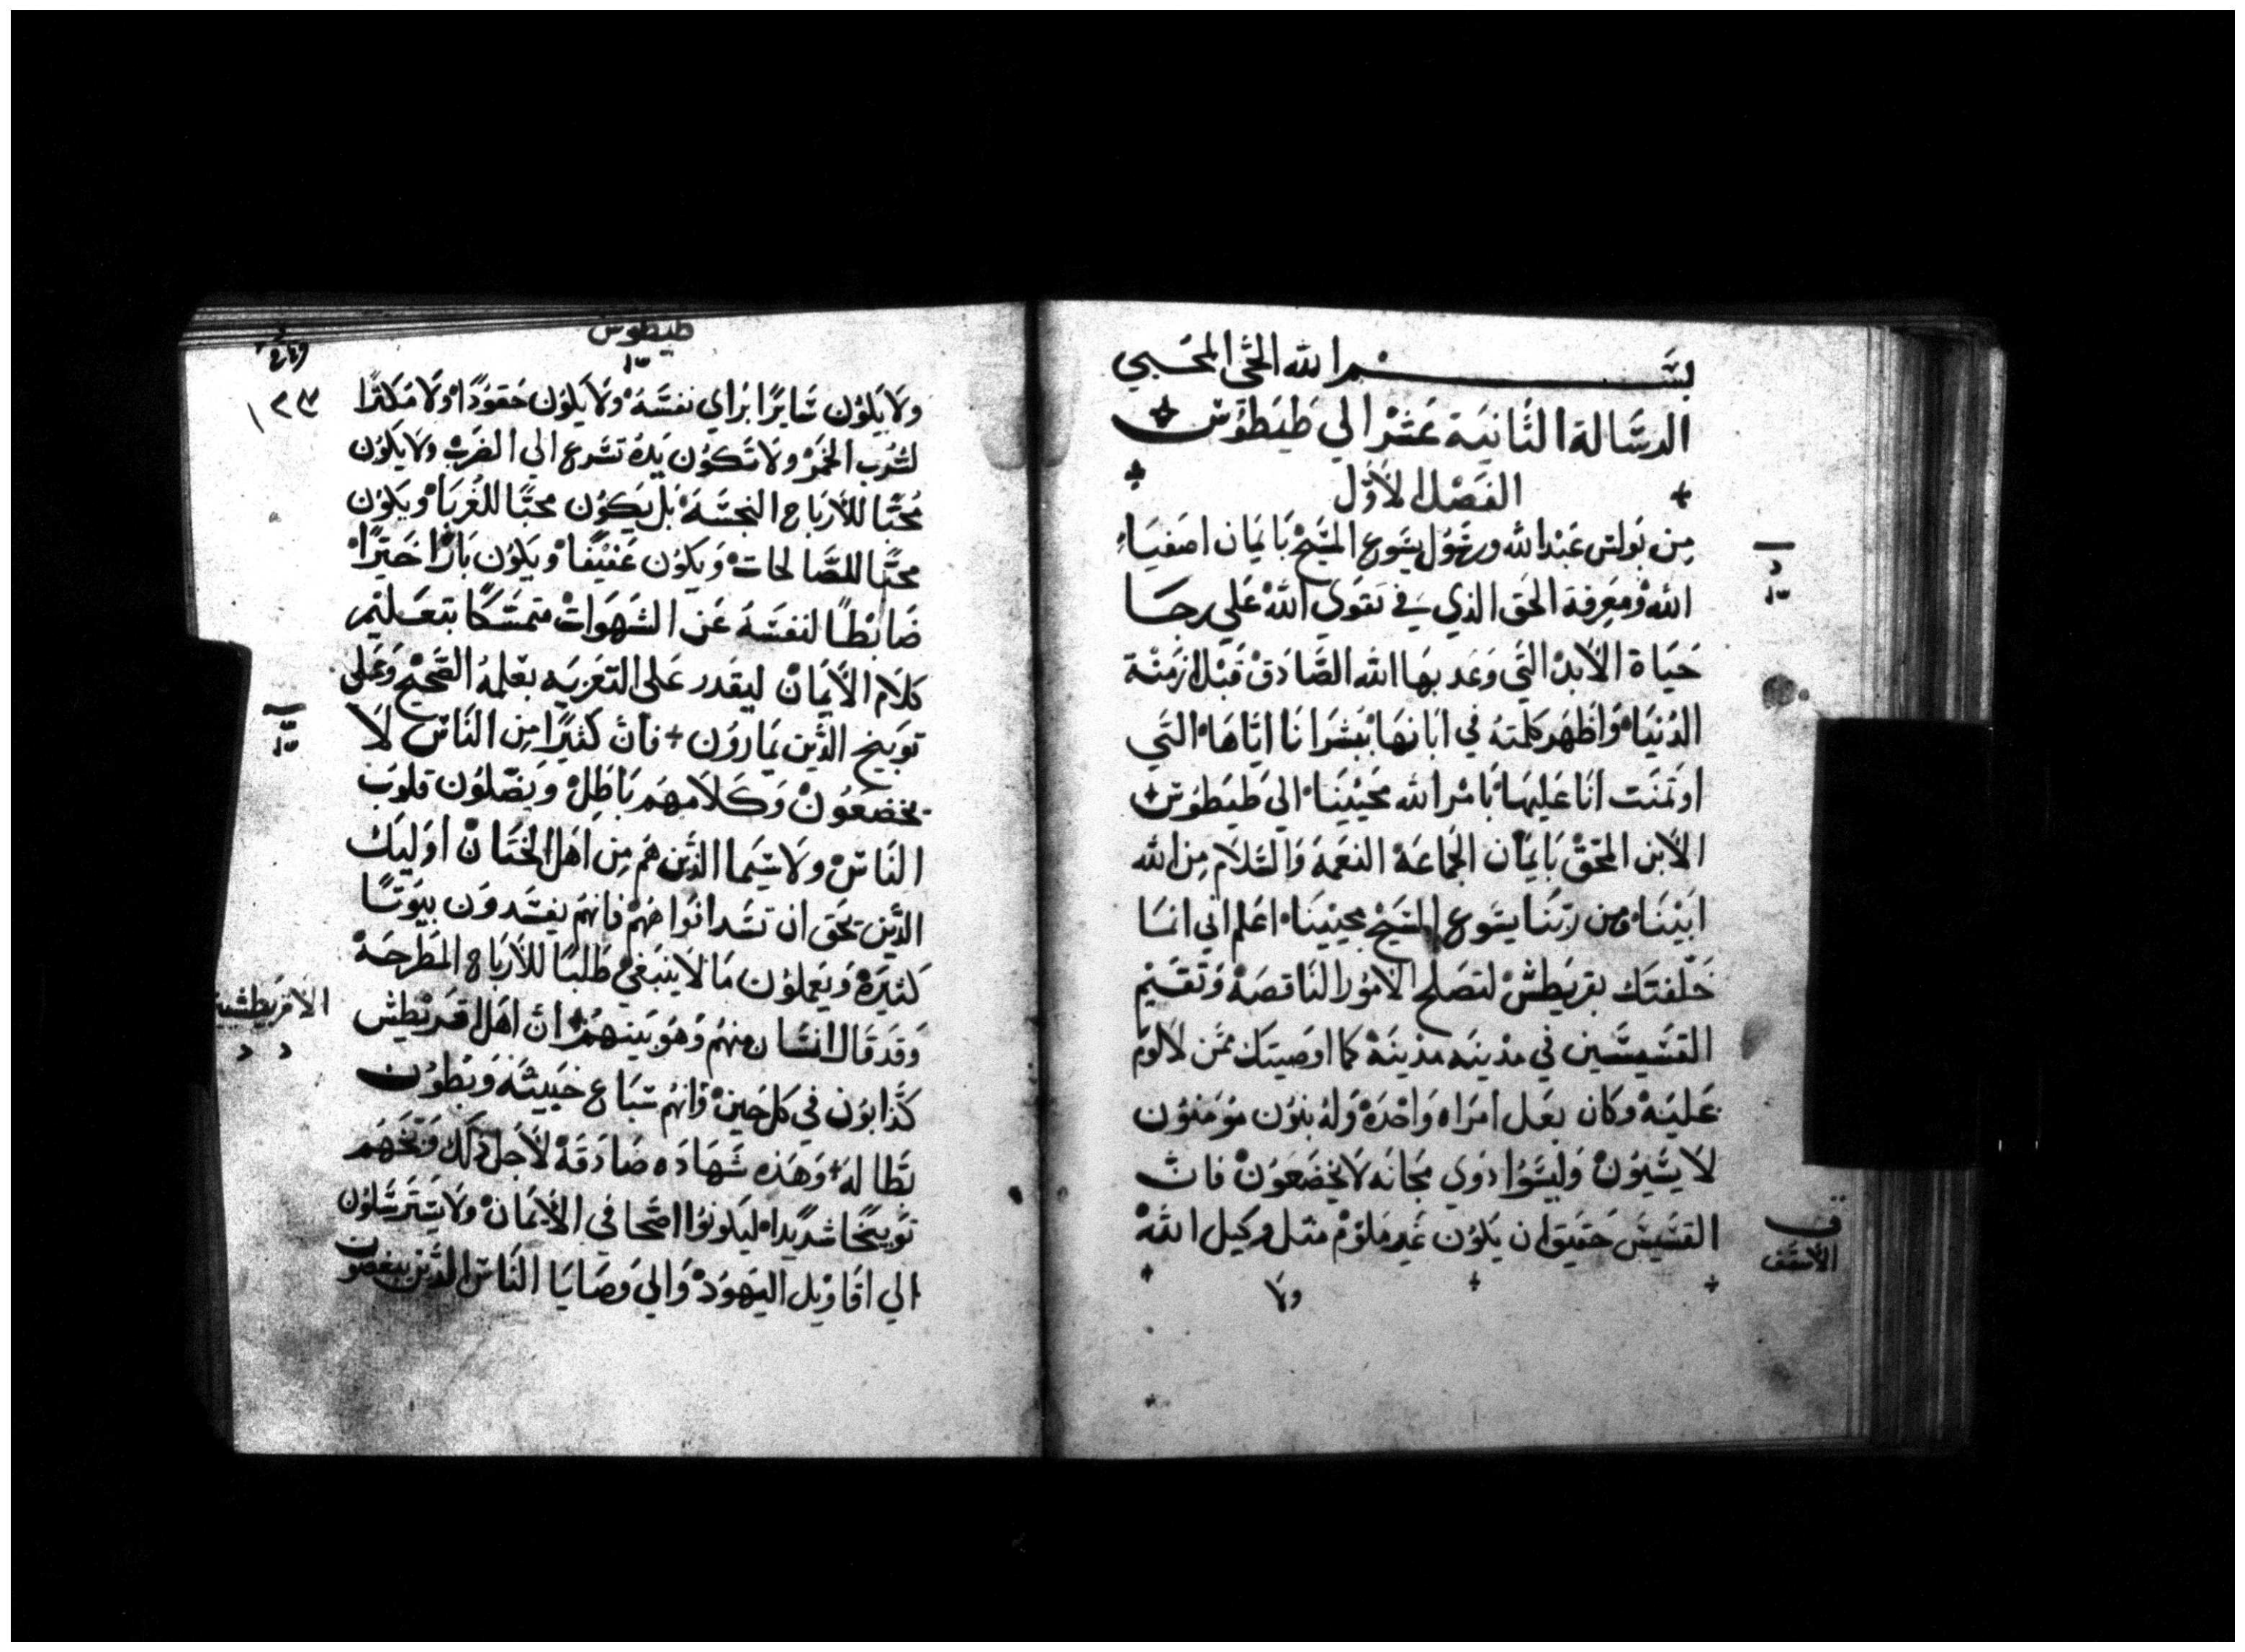 بسم الله الحي المحيي
الرسالة الثانية عشر الي طيطوس
الفصل الأول
من بولس عبد الله ورسول يسوع المسيح بايمان اصفياء
الله ومعرفة الحق الذي في تقوي الله علي رجا
حياة الأبد التي وعد بها الله الصادق قبل ازمنة
الدنيا واظهر كلمته في ابانها ببشرانا اياها التي
اوتمنت انا عليها بامر الله محيينا الي طيطوس
الابن المحق بايمان الجماعة النعمة والسلام من الله
ابينا ومن ربنا يسوع المسيح محيينا اعلم اني انما
خلفتك بقريطش لتصلح الامور الناقصة وتقيم
القسيسين في مدينه مدينة كما اوصيتك ممن لا لوم
عليه وكان بعل امراه واحدة وله بنون مومنون
لا يسبون وليسوا دوي مجانه لا يخضعون فان
القسيس حقيق ان يكون غير ملوم مثل وكيل الله
الأسقف
ولا
طيطوس
ولا يكون سايرا براي نفسه ولا يكون حقودا ولا مكثرا
لشرب الخمر ولا تكون يده تسرع الي الضرب ولا يكون
محبا للأرباح النجسة بل يكون محبا للغربا ويكون
محبا للصالحات ويكون عفيفا ويكون بارا خيرا
ضابطا لنفسه عن الشهوات متمسكا بتعليم
كلام الأيمان ليقدر علي التعزيه بعلمه الصحيح وعلي
توبيخ الذين يمارون فان كثيرا من الناس لا
يخضعون وكلامهم باطل ويضلون قلوب
الناس ولا سيما الذين هم من اهل الختان اوليك
الذين يحق ان تسد افواههم فانهم يفسدون بيوتا
كثيرة ويعملون ما لا ينبغي طلبا للأرباح المطرحة
وقد قال انسان منهم وهو بينهم ان اهل اقريطش
الاقريطشية
كذابون في كل حين وانهم سباع خبيثه وبطون
بطاله وهذه شهاده صادقة لأجل ذلك وبخهم
توبيخا شديدا ليكونوا اصحا في الأيمان ولا يسترسلون
الي اقاويل اليهود والي وصايا الناس الذين يبغضون